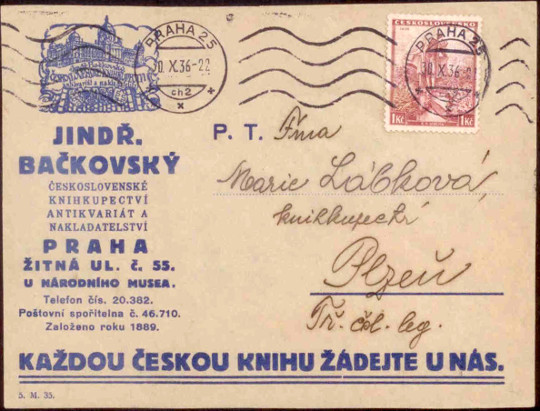 PRAHA 25
X.36-22
ch2
ČESKOSLOVENSKO
PRAHA 25
X.36-2
1Kč 1Kč
JINDŘ.
BAČKOVSKÝ
ČESKOSLOVENSKÉ
KNIHKUPECTVÍ
ANTIKVARIÁT A
NAKLADATELSTVÍ
PRAHA
ŽITNÁ UL. č. 55.
U NÁRODNÍHO MUSEA.
Telefon čís. 20.382.
Poštovní spořitelna č. 46.710.
Založeno roku 1889.
P. T. Fíma
Marie Lábková,
knihkupectví
Plzeň
Tř. čsl. leg.
KAŽDOU ČESKOU KNIHU ŽÁDEJTE U NÁS.
5. M. 35.